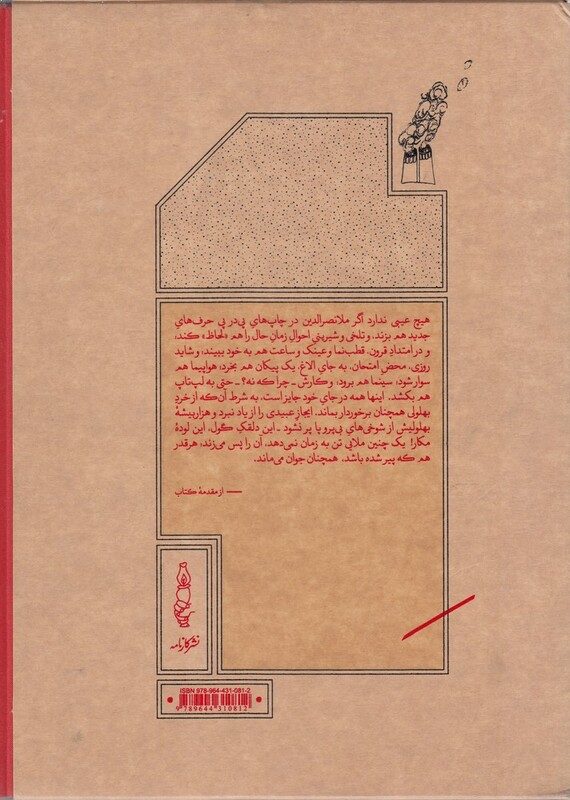 هیچ عیبی ندارد اگر ملانصرالدین در چاپ‌های پی‌درپی حرف‌های
جدید هم بزند. و تلخی و شیرینی احوالِ زمانِ حال را هم «لحاظ» کند؛
و در امتدادِ قرون، قطب‌نما و عینک و ساعت هم به خود ببیند؛ و شاید
روزی، محضِ امتحان، به جای الاغ، یک پیکان هم بخرد؛ هواپیما هم
سوار شود؛ سینما هم برود؛ و کارش ـ چرا که نه؟ ـ حتی به لپ‌تاپ
هم بکشد. اینها همه در جای خود جایز است، به شرط آن‌که از خردِ
بهلولی همچنان برخوردار بماند، ایجازِ عبیدی را از یاد نبرد و هزاربیشهٔ
بهلولیش از شوخی‌های بی‌پروپا پر نشود ـ این دلقکِ گول، این لودهٔ
مکار! یک چنین ملایی تن به زمان نمی‌دهد، آن را پس می‌زند؛ هرقدر
هم که پیر شده باشد، همچنان جوان می‌ماند.
— از مقدمهٔ کتاب
نشر کارنامه
ISBN 978-964-431-081-2
9 789644 310812